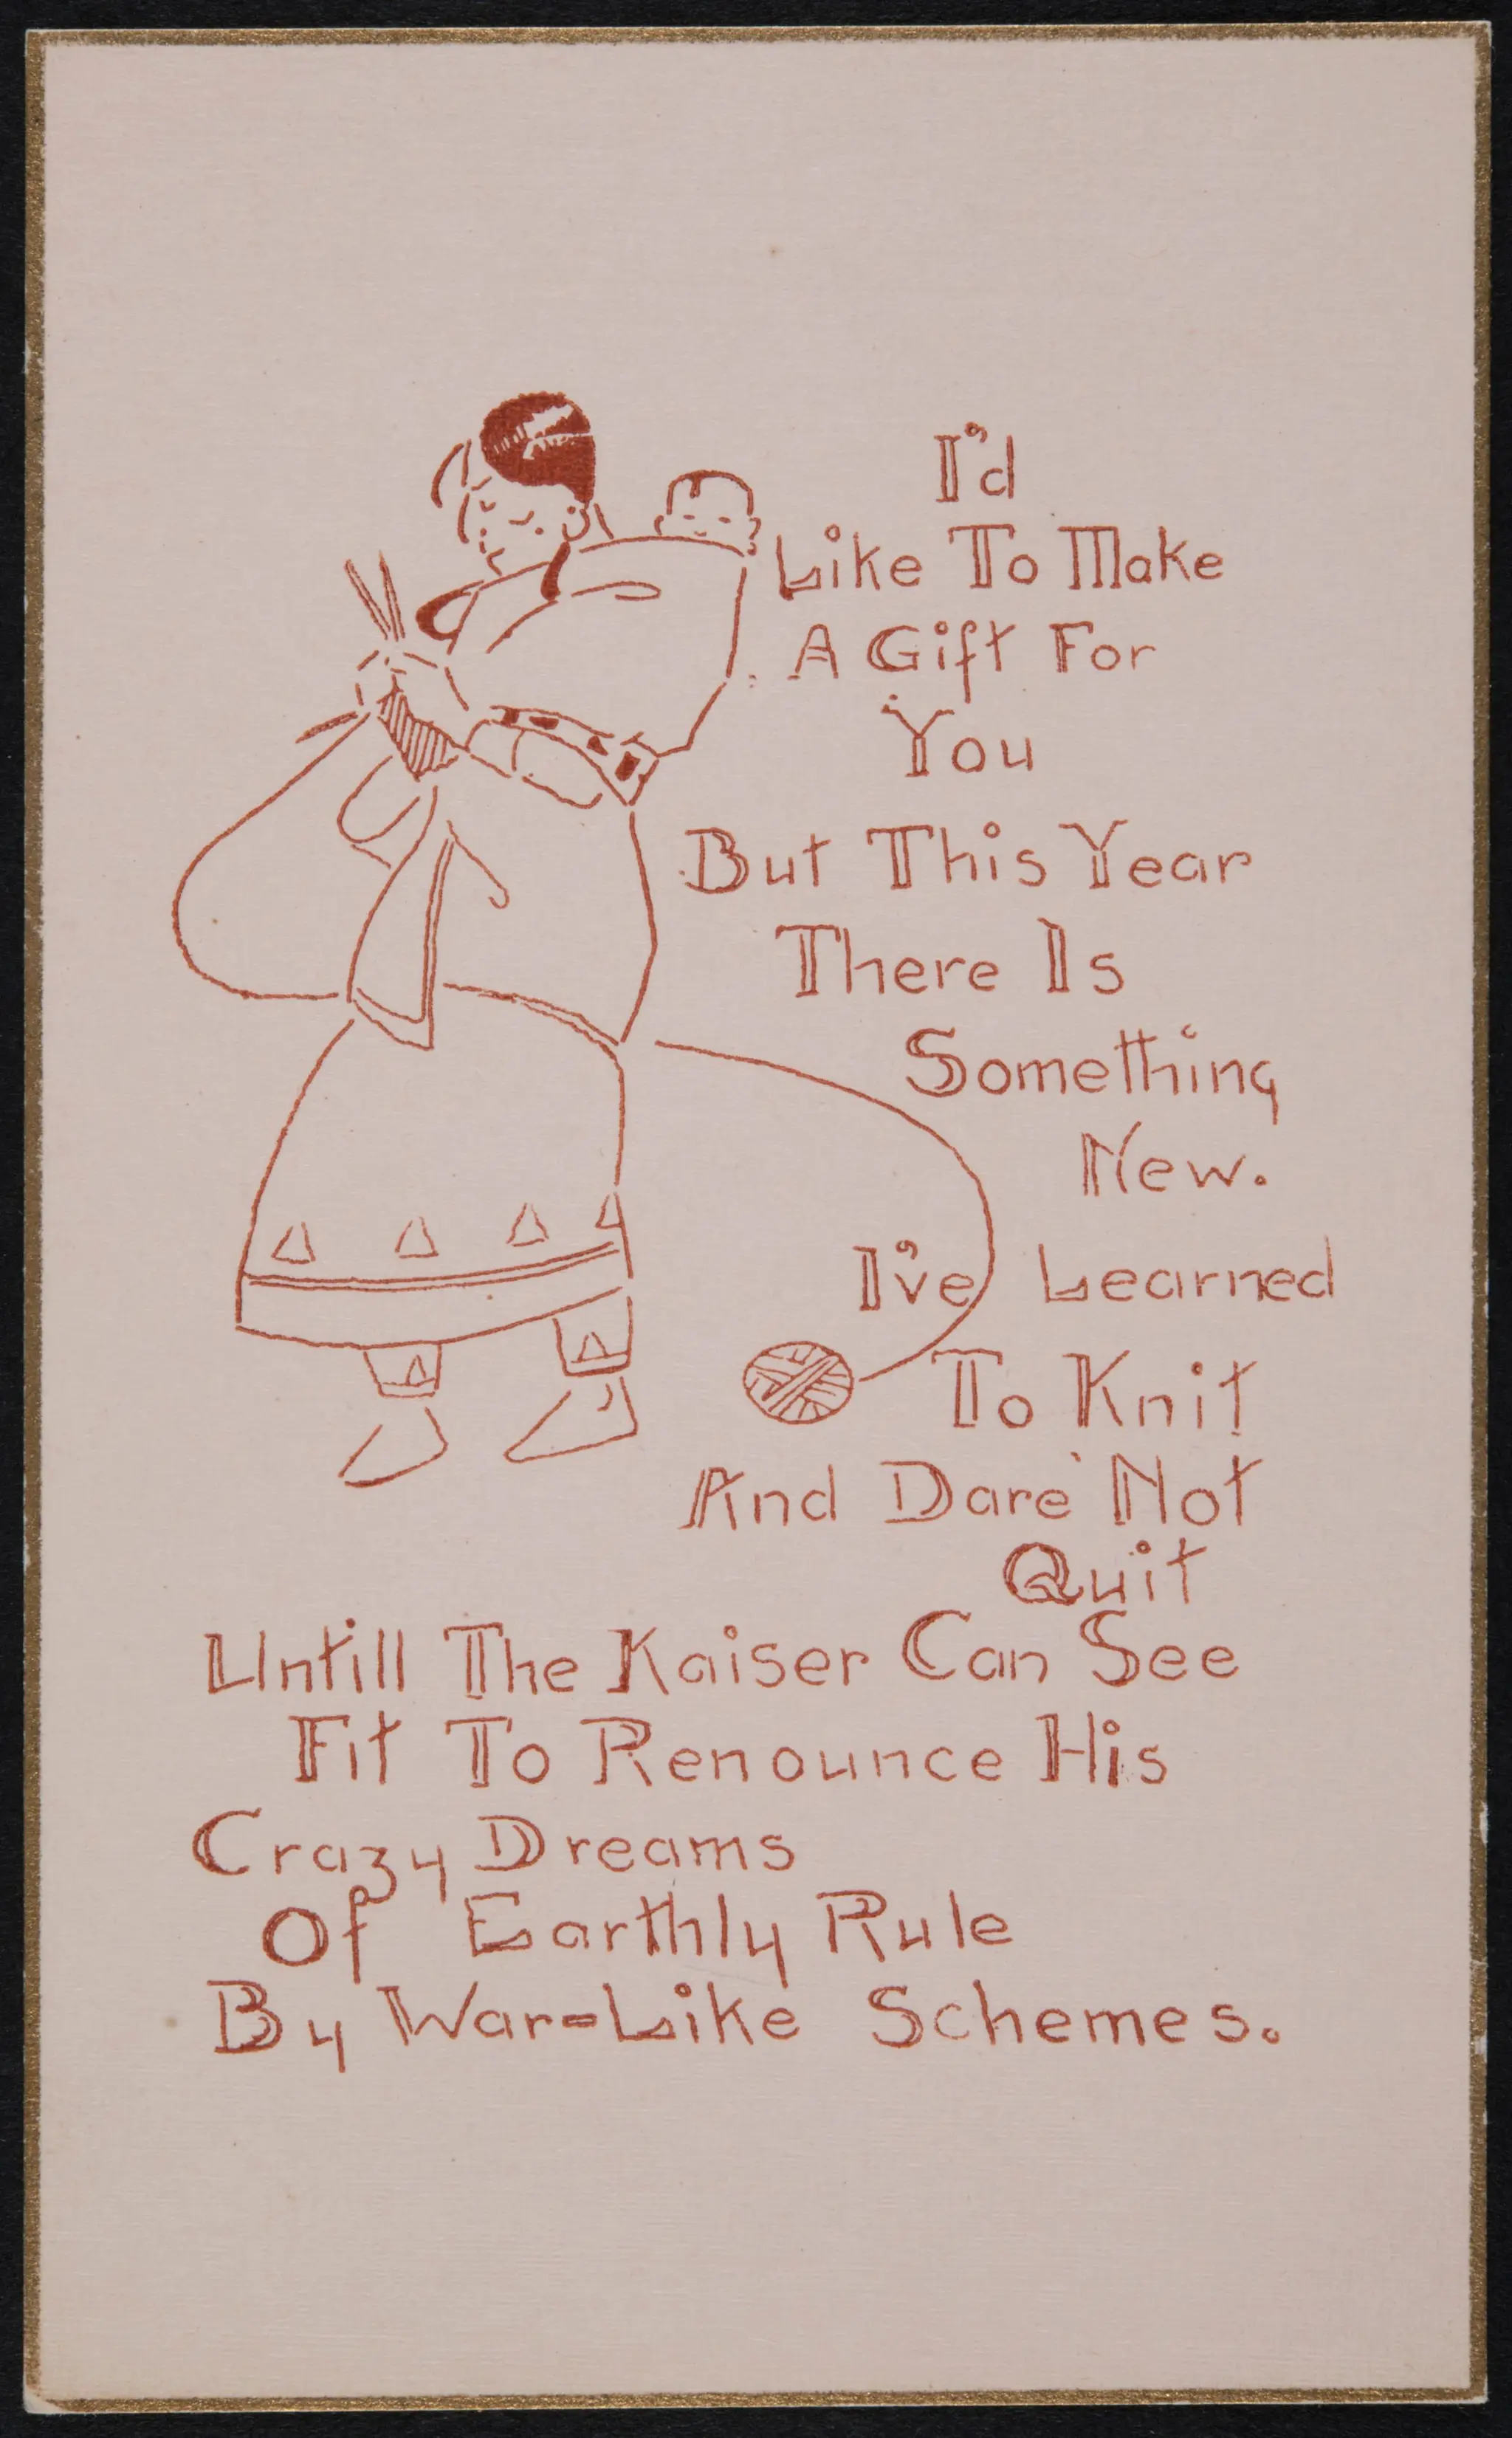 I'd
Like To Make
A Gift For
You
But This Year
There Is
Something
New.
I've Learned
To Knit
And Dare Not
Quit
Untill The Kaiser Can See
Fit To Renounce His
Crazy Dreams
Of Earthly Rule
By War-Like Schemes.